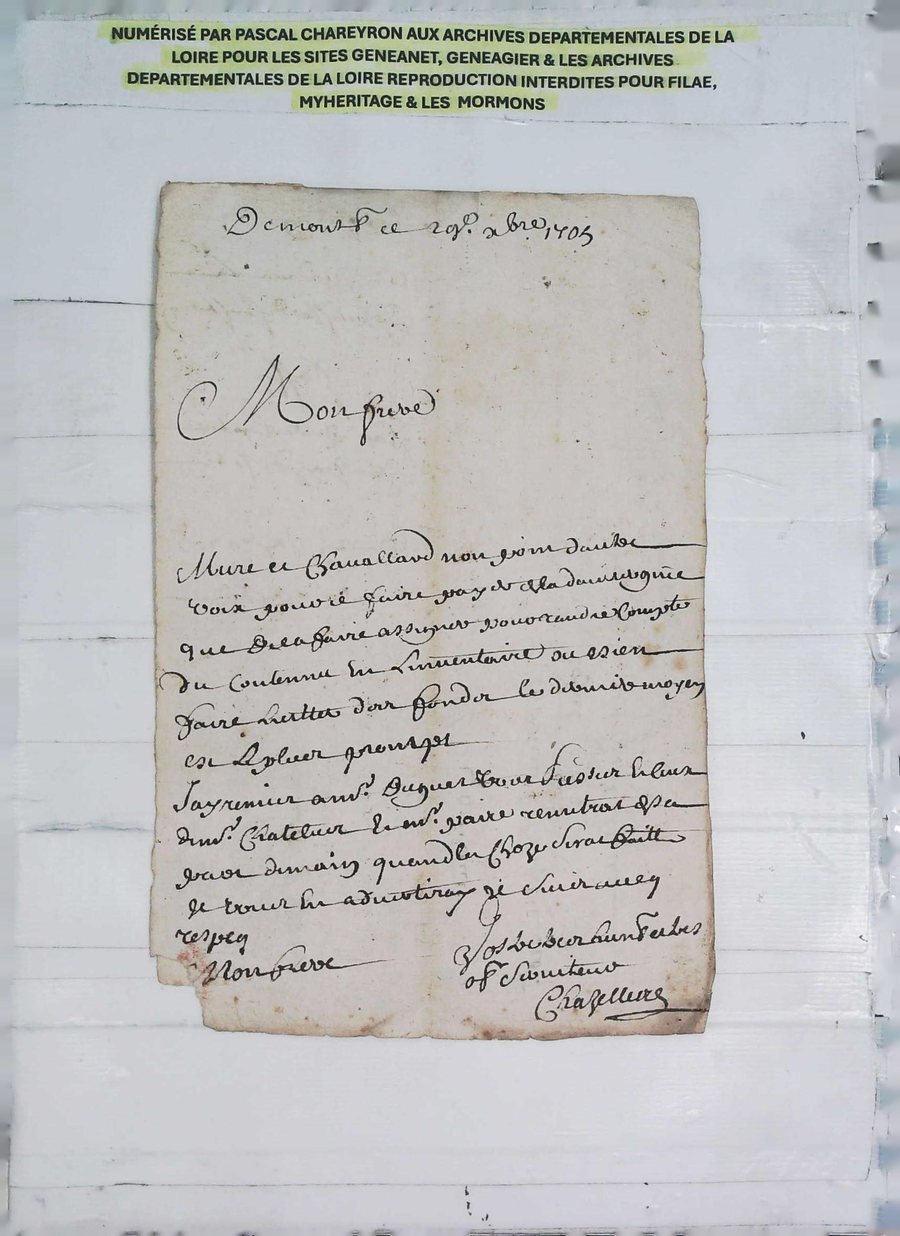 NUMÉRISÉ PAR PASCAL CHAREYRON AUX ARCHIVES DEPARTEMENTALES DE LA
LOIRE POUR LES SITES GENEANET, GENEAGIER & LES ARCHIVES
DEPARTEMENTALES DE LA LOIRE REPRODUCTION INTERDITES POUR FILAE,
MYHERITAGE & LES MORMONS
Demont ce 29e xbre 1705
Mon frere
Mure et Chavalland non point dautre
voix pour se faire payer
que de la faire assigner pour randre Compte
Du Contennu En Linventaire ou bien
faire le dernier moyen
est Le pleus prompt
Jay remis a mr.
de mr. Chateleus Le mr. paire remetrat
demain quand la Choze Serat faitte
Je vous En advertiray Je Suis avecq
respeq
Mon frere
Vostre tres humble et tres
obt Serviteur
Chazelles